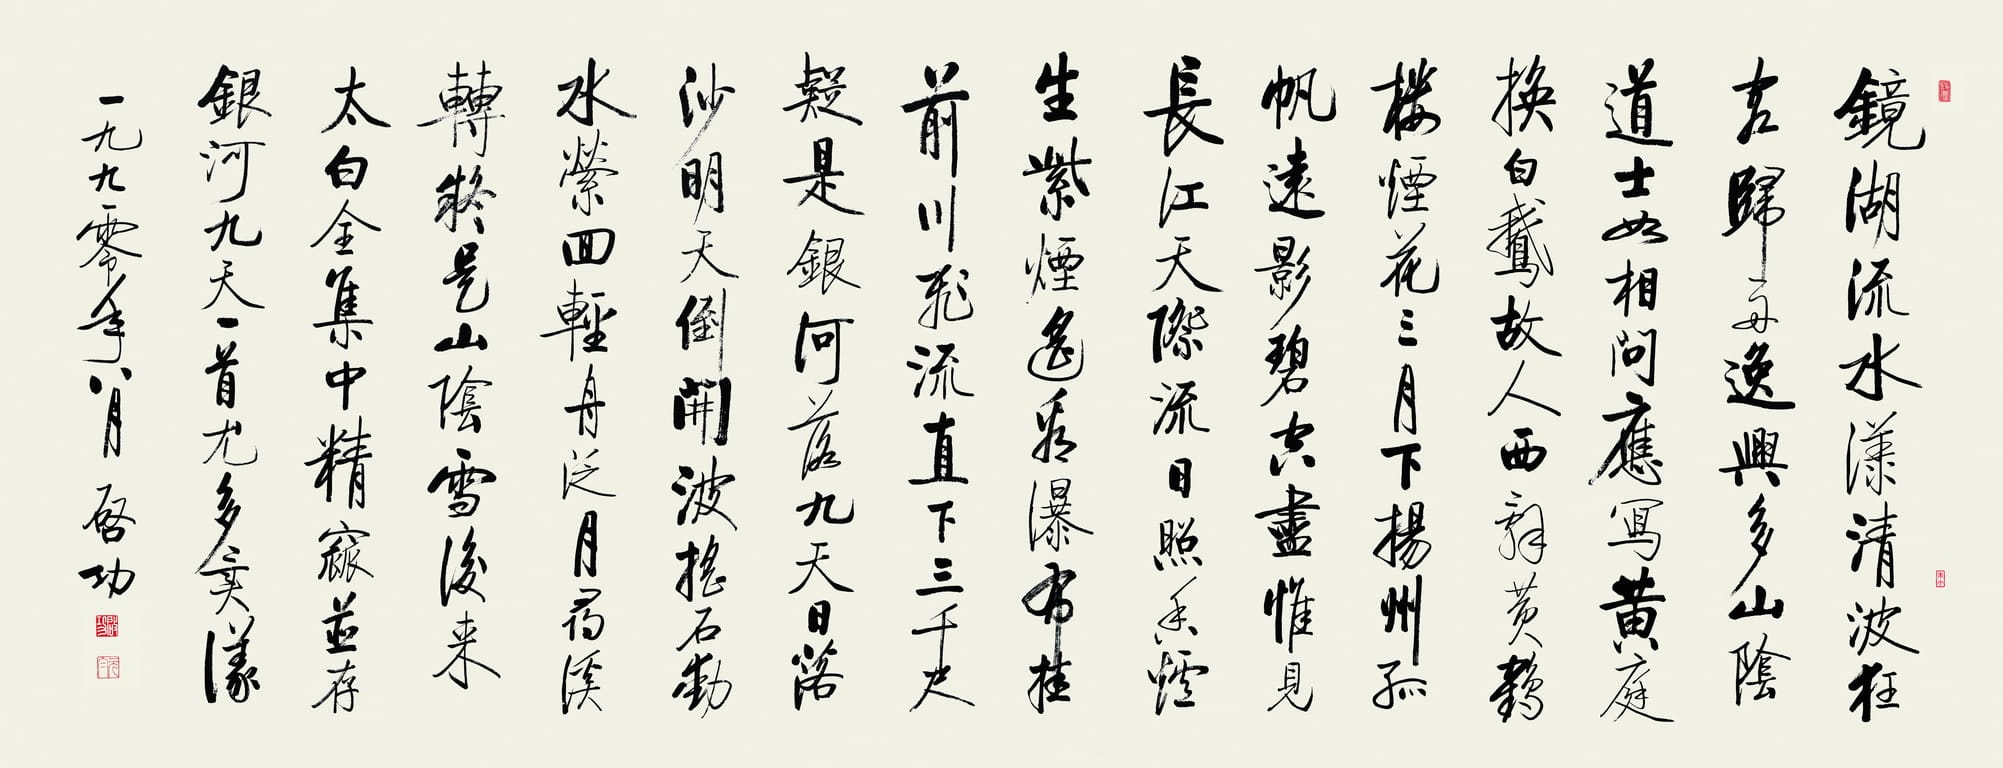 鏡湖流水漾清波狂
客歸舟逸興多山陰
道士如相問應寫黃庭
換白鵝故人西辭黃鶴
樓煙花三月下揚州孤
帆遠影碧空盡惟見
長江天際流日照香爐
生紫煙遙看瀑布挂
前川飛流直下三千尺
疑是銀河落九天日落
沙明天倒開波搖石動
水縈回輕舟泛月尋溪
轉疑是山陰雪後來
太白全集中精窳並存
銀河九天一首尤多
一九九零年八月 启功